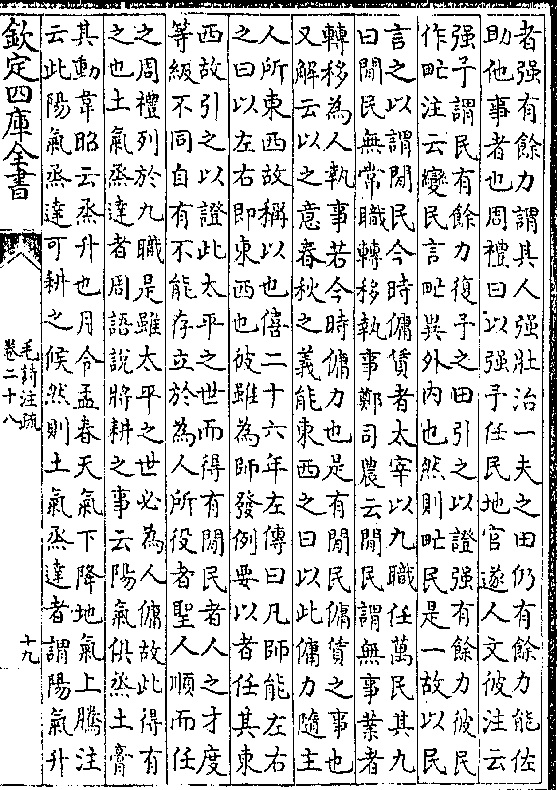 者强有餘力謂其人强壯治一夫之田仍有餘力能佐
助他事者也周禮曰以强予任民地官遂人文彼注云
强予謂民有餘力復予之田引之以證强有餘力彼民
作甿注云變民言甿異外內也然則甿民是一故以民
言之以謂閒民今時傭賃者太宰以九職任萬民其九
曰閒民無常職轉移執事鄭司農云閒民謂無事業者
轉移為人執事若今時傭力也是有閒民傭賃之事也
又解云以之意春秋之義能東西之曰以此傭力隨主
人所東西故稱以也僖二十六年左傳曰凡師能左右
之曰以左右即東西也彼雖為師發例要以者任其東
西故引之以證此太平之世而得有閒民者人之才度
等級不同自有不能存立於為人所役者聖人順而任
之周禮列於九職是雖太平之世必為人傭故此得有
之也土氣烝達者周語說將耕之事云陽氣俱烝土膏
其動韋昭云烝升也月令孟春天氣下降地氣上騰注
云此陽氣烝達可耕之候然則土氣烝達者謂陽氣升
欽定四庫全書
毛詩注疏
卷二十八
十九